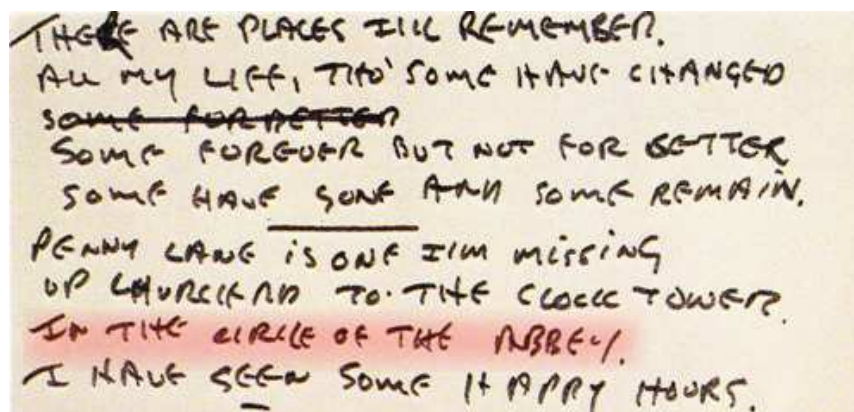 THERE ARE PLACES I'LL REMEMBER.
ALL MY LIFE, THO' SOME HAVE CHANGED
SOME FOR BETTER
SOME FOREVER BUT NOT FOR BETTER
SOME HAVE GONE AND SOME REMAIN.
PENNY LANE is ONE I'M MiSSiNG
UP CHURCH RD TO THE CLOCK TOWER.
IN THE CIRCLE OF THE ABBEY.
I HAVE SEEN SOME HAPPY HOURS.